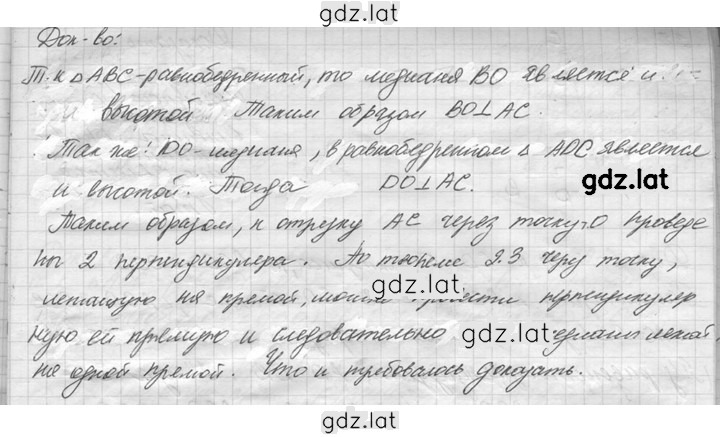 gdz.lat
Док-во:
Т.к △ABC-равнобедренный, то медиана BO является и
высотой Таким образом BO⊥AC.
Так же! DO-медиана, в равнобедренном △ ADC является
gdz.lat
и высотой. Тогда DO⊥AC.
Таким образом, к отрезку AC через точку O проведе
ны 2 перпендикуляра. По теореме 2.3 через точку,
gdz.lat
лежащую на прямой, можно провести перпендикуляр
ную ей прямую и следовательно лежат
gdz.lat
на одной прямой. Что и требовалось доказать.
gdz.lat